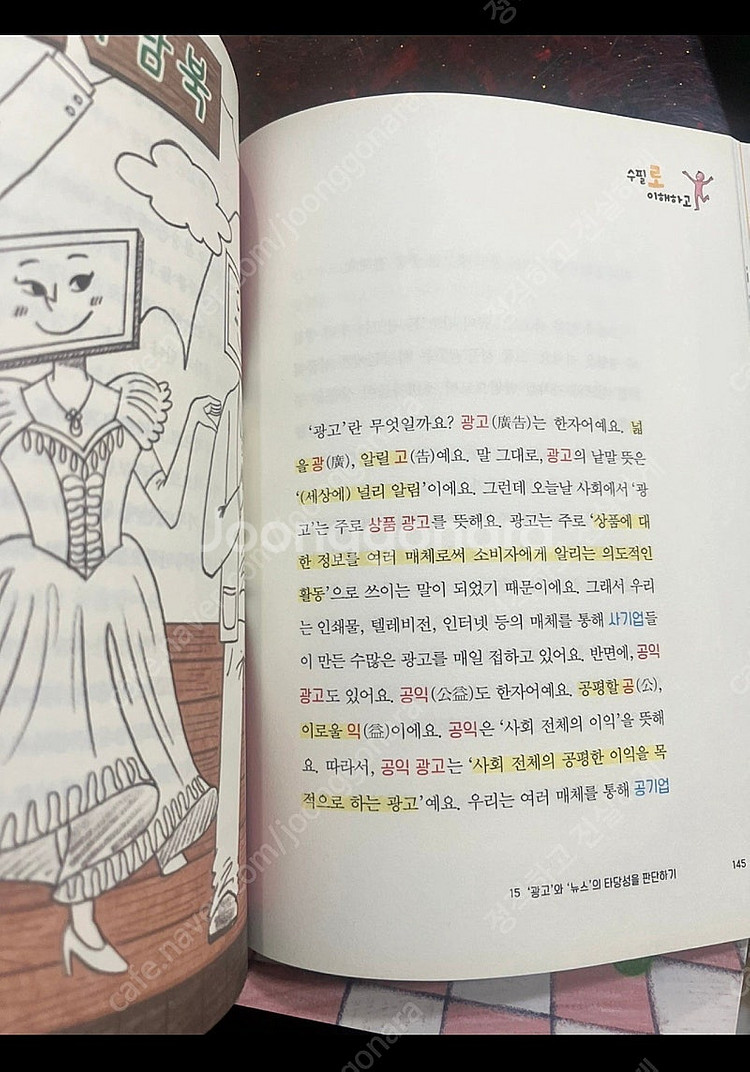 수필로
이해하고
'광고'란 무엇일까요? 광고(廣告)는 한자어예요. 넓
을 광(廣), 알릴 고(告)예요. 말 그대로, 광고의 낱말 뜻은
'(세상에) 널리 알림'이에요. 그런데 오늘날 사회에서 '광
고'는 주로 상품 광고를 뜻해요. 광고는 주로 '상품에 대
한 정보를 여러 매체로써 소비자에게 알리는 의도적인
활동'으로 쓰이는 말이 되었기 때문이에요. 그래서 우리
는 인쇄물, 텔레비전, 인터넷 등의 매체를 통해 사기업들
이 만든 수많은 광고를 매일 접하고 있어요. 반면에, 공익
광고도 있어요. 공익(公益)도 한자어예요. 공평할 공(公),
이로울 익(益)이에요. 공익은 '사회 전체의 이익'을 뜻해
요. 따라서, 공익 광고는 '사회 전체의 공평한 이익을 목
적으로 하는 광고'예요. 우리는 여러 매체를 통해 공기업
15 '광고'와 '뉴스'의 타당성을 판단하기
145
joonggonara